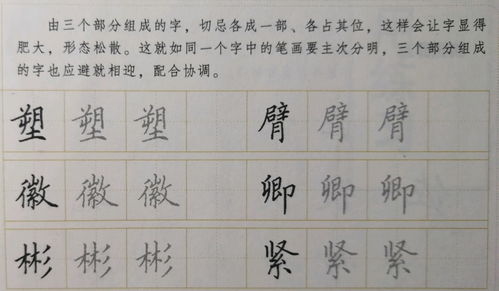 由三个部分组成的字，切忌各成一部、各占其位，这样会让字显得
肥大，形态松散。这就如同一个字中的笔画要主次分明，三个部分组成
的字也应避就相迎，配合协调。
塑 塑 塑 臂 臂 臂
徽 徽 徽 卿 卿 卿
彬 彬 彬 紧 紧 紧